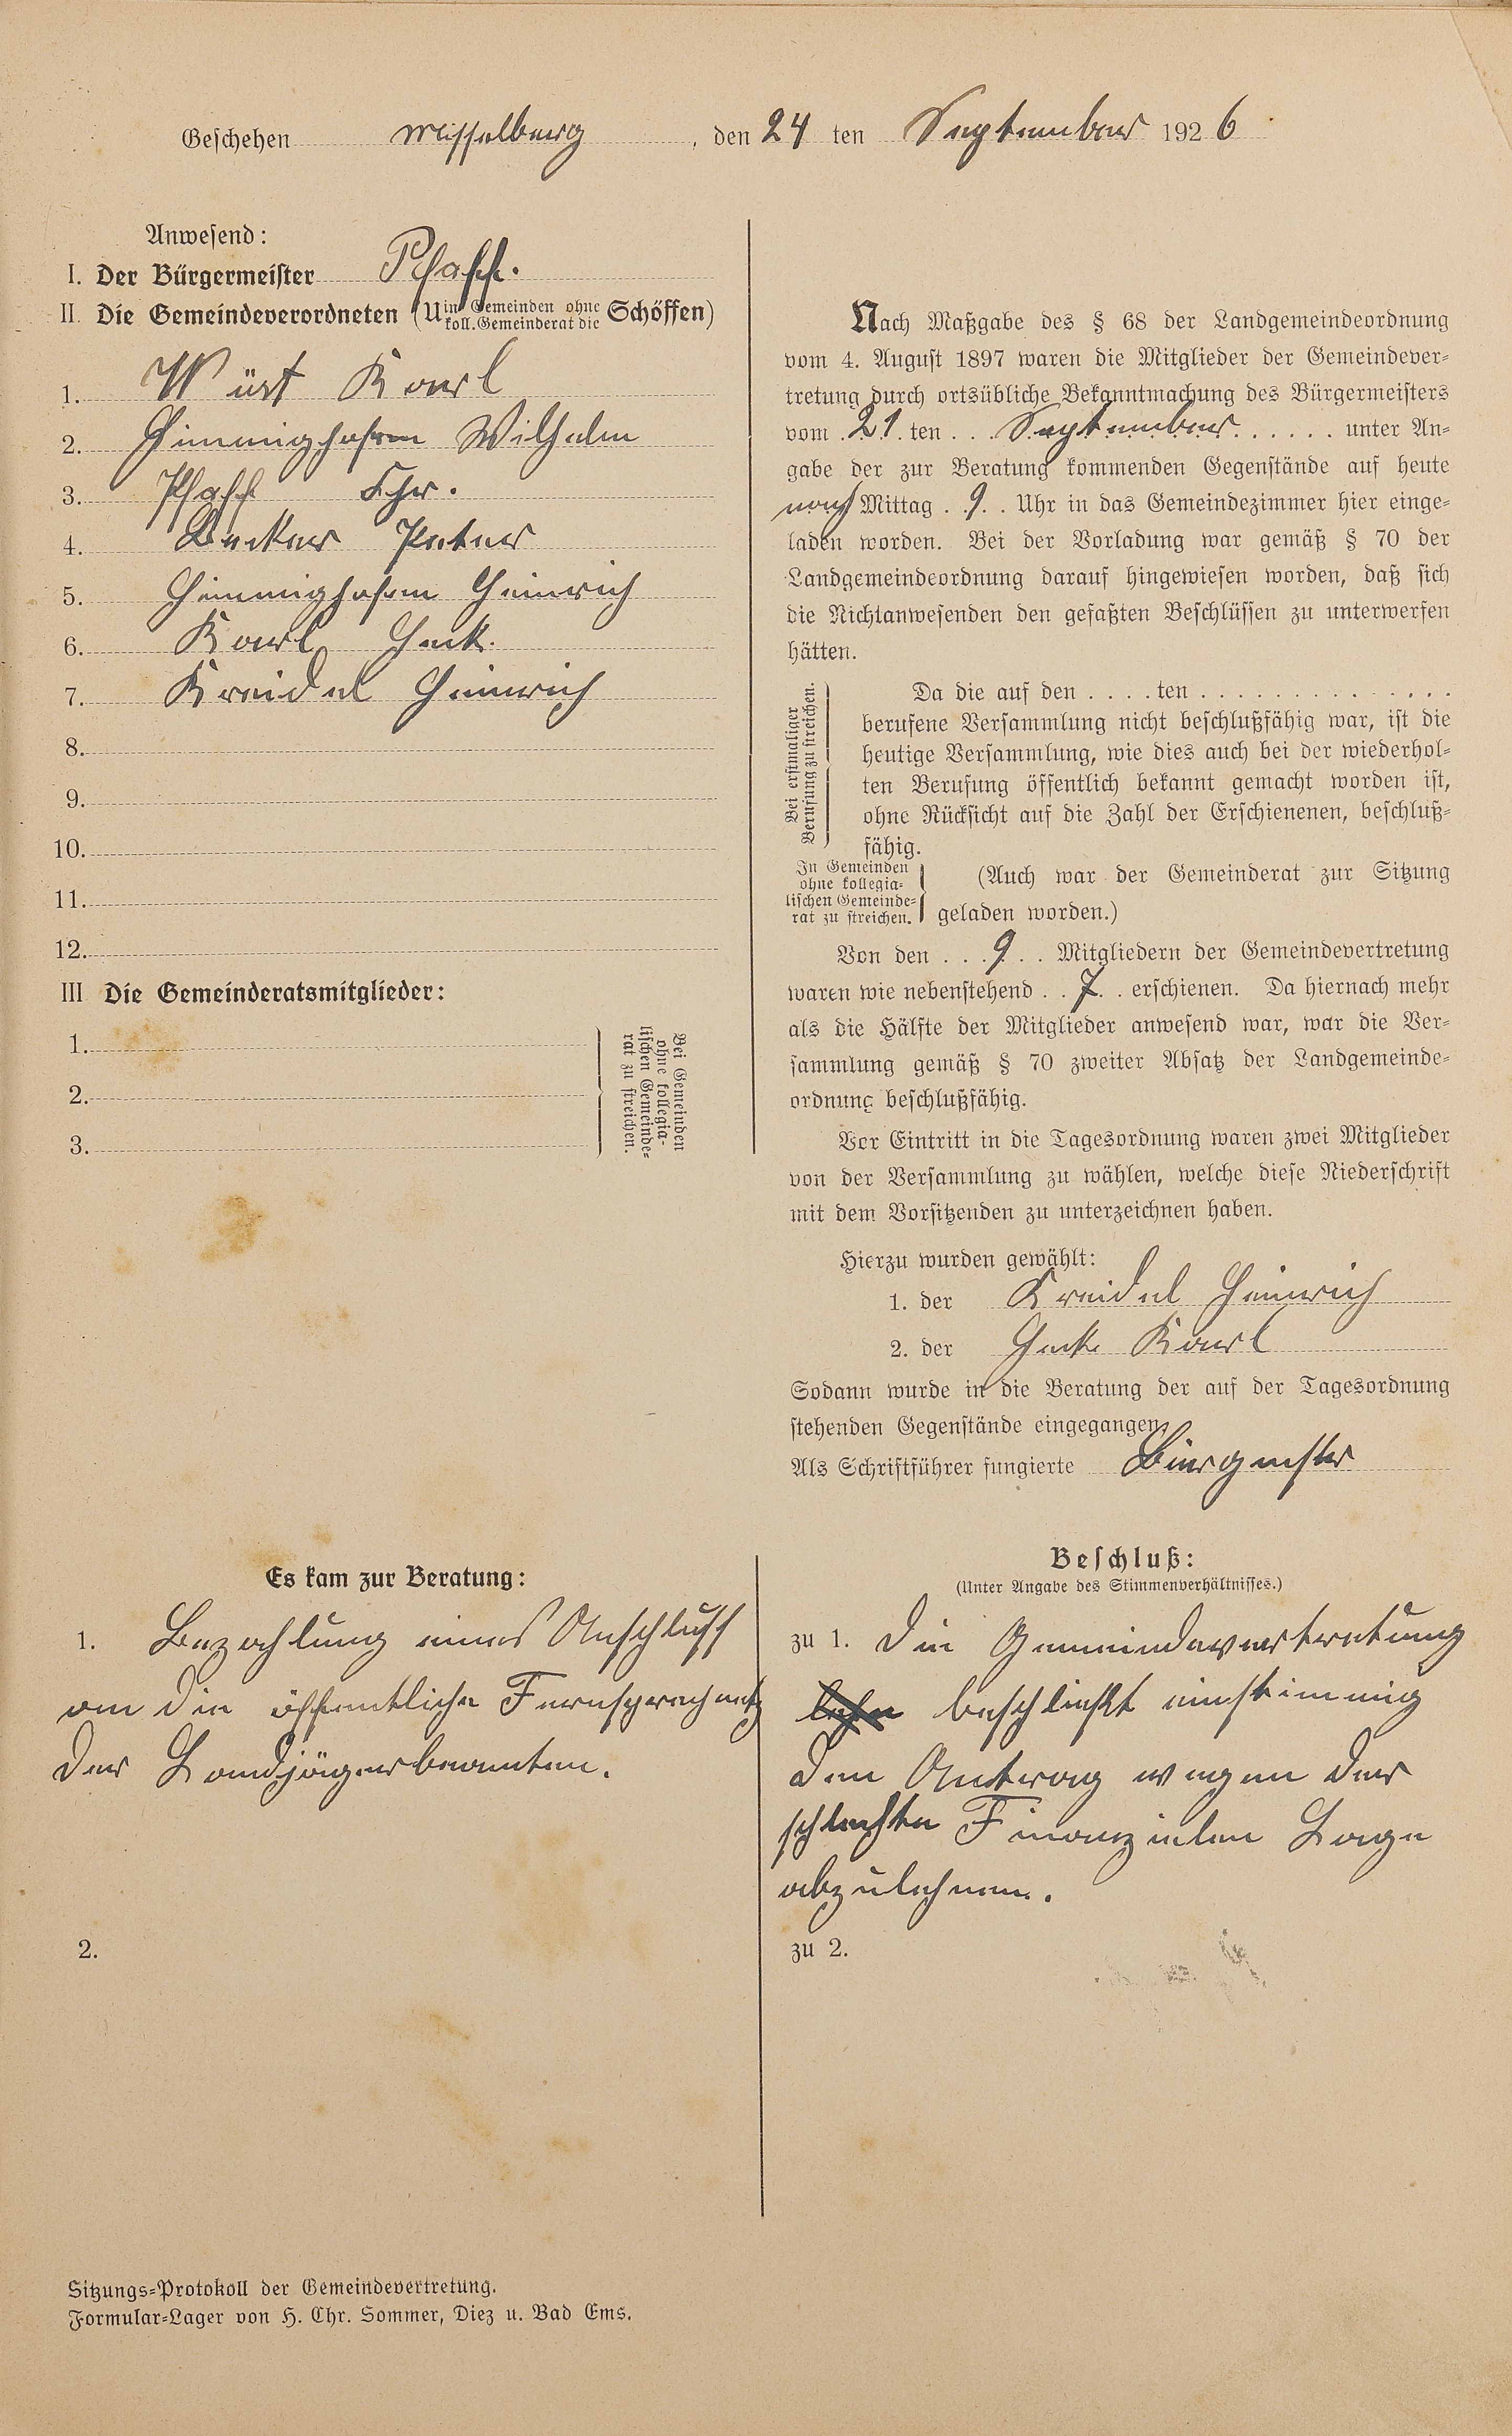 Geschehen Misselberg, den 24 ten September 1926
Anwesend:
I. Der Bürgermeister Pfaff.
II. Die Gemeindeverordneten (U in Gemeinden ohne koll. Gemeinderat die Schöffen)
1. Wüst Karl
2. Himmighofen Wilhelm
3. Pfaff Chr.
4. Becker Peter
5. Himmighofen Heinrich
6. Karl
7. Kreidel Heinrich
8.
9.
10.
11.
12.
III Die Gemeinderatsmitglieder:
1.
2.
3.
Bei Gemeinden
ohne kollegia-
lischen Gemeinde-
rat zu streichen.
Nach Maßgabe des § 68 der Landgemeindeordnung
vom 4. August 1897 waren die Mitglieder der Gemeindever-
tretung durch ortsübliche Bekanntmachung des Bürgermeisters
vom 21. ten September unter An-
gabe der zur Beratung kommenden Gegenstände auf heute
nach Mittag 9 Uhr in das Gemeindezimmer hier einge-
laden worden. Bei der Vorladung war gemäß § 70 der
Landgemeindeordnung darauf hingewiesen worden, daß sich
die Nichtanwesenden den gefaßten Beschlüssen zu unterwerfen
hätten.
Bei erstmaliger
Berufung zu streichen.
Da die auf den . . . . ten . . . . . . . . . . . . . .
berufene Versammlung nicht beschlußfähig war, ist die
heutige Versammlung, wie dies auch bei der wiederhol-
ten Berufung öffentlich bekannt gemacht worden ist,
ohne Rücksicht auf die Zahl der Erschienenen, beschluß-
fähig.
In Gemeinden
ohne kollegia-
lischen Gemeinde-
rat zu streichen.
(Auch war der Gemeinderat zur Sitzung
geladen worden.)
Von den . . . 9 . . Mitgliedern der Gemeindevertretung
waren wie nebenstehend . . 7 . . erschienen. Da hiernach mehr
als die Hälfte der Mitglieder anwesend war, war die Ver-
sammlung gemäß § 70 zweiter Absatz der Landgemeinde-
ordnung beschlußfähig.
Vor Eintritt in die Tagesordnung waren zwei Mitglieder
von der Versammlung zu wählen, welche diese Niederschrift
mit dem Vorsitzenden zu unterzeichnen haben.
Hierzu wurden gewählt:
1. der Kreidel Heinrich
2. der Karl
Sodann wurde in die Beratung der auf der Tagesordnung
stehenden Gegenstände eingegangen.
Als Schriftführer fungierte Bürgmster
Es kam zur Beratung:
1. Bezahlung eines Anschluss
an die öffentliche Fernsprechnetz
der Landjägerbeamten.
2.
Beschluß:
(Unter Angabe des Stimmenverhältnisses.)
zu 1. Die Gemeindevertretung
beschließt einstimmig
den Antrag wegen der
schlechte Finanzielen Lage
abzulehnen.
zu 2.
Sitzungs-Protokoll der Gemeindevertretung.
Formular-Lager von H. Chr. Sommer, Diez u. Bad Ems.